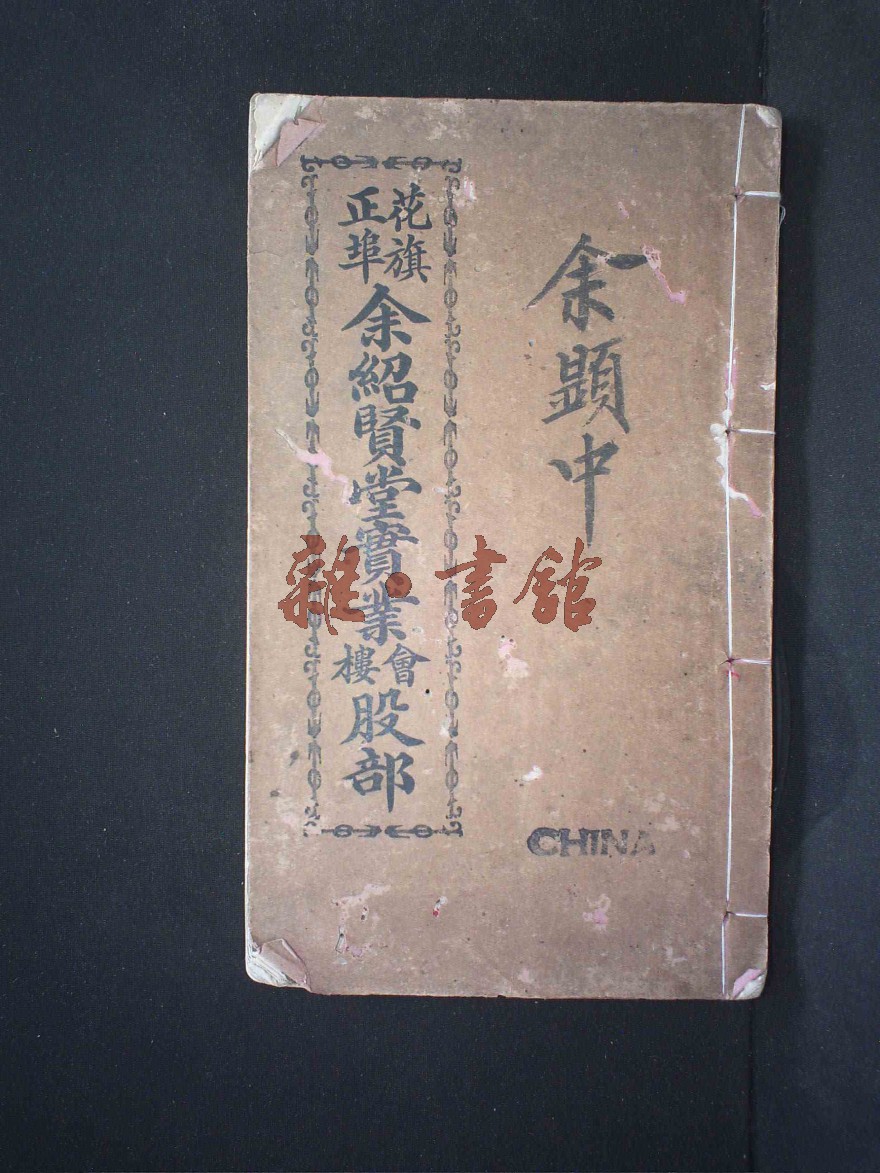 余顕中
花旗
正埠
余紹賢堂實業
會樓
股部
CHINA
雜·書館